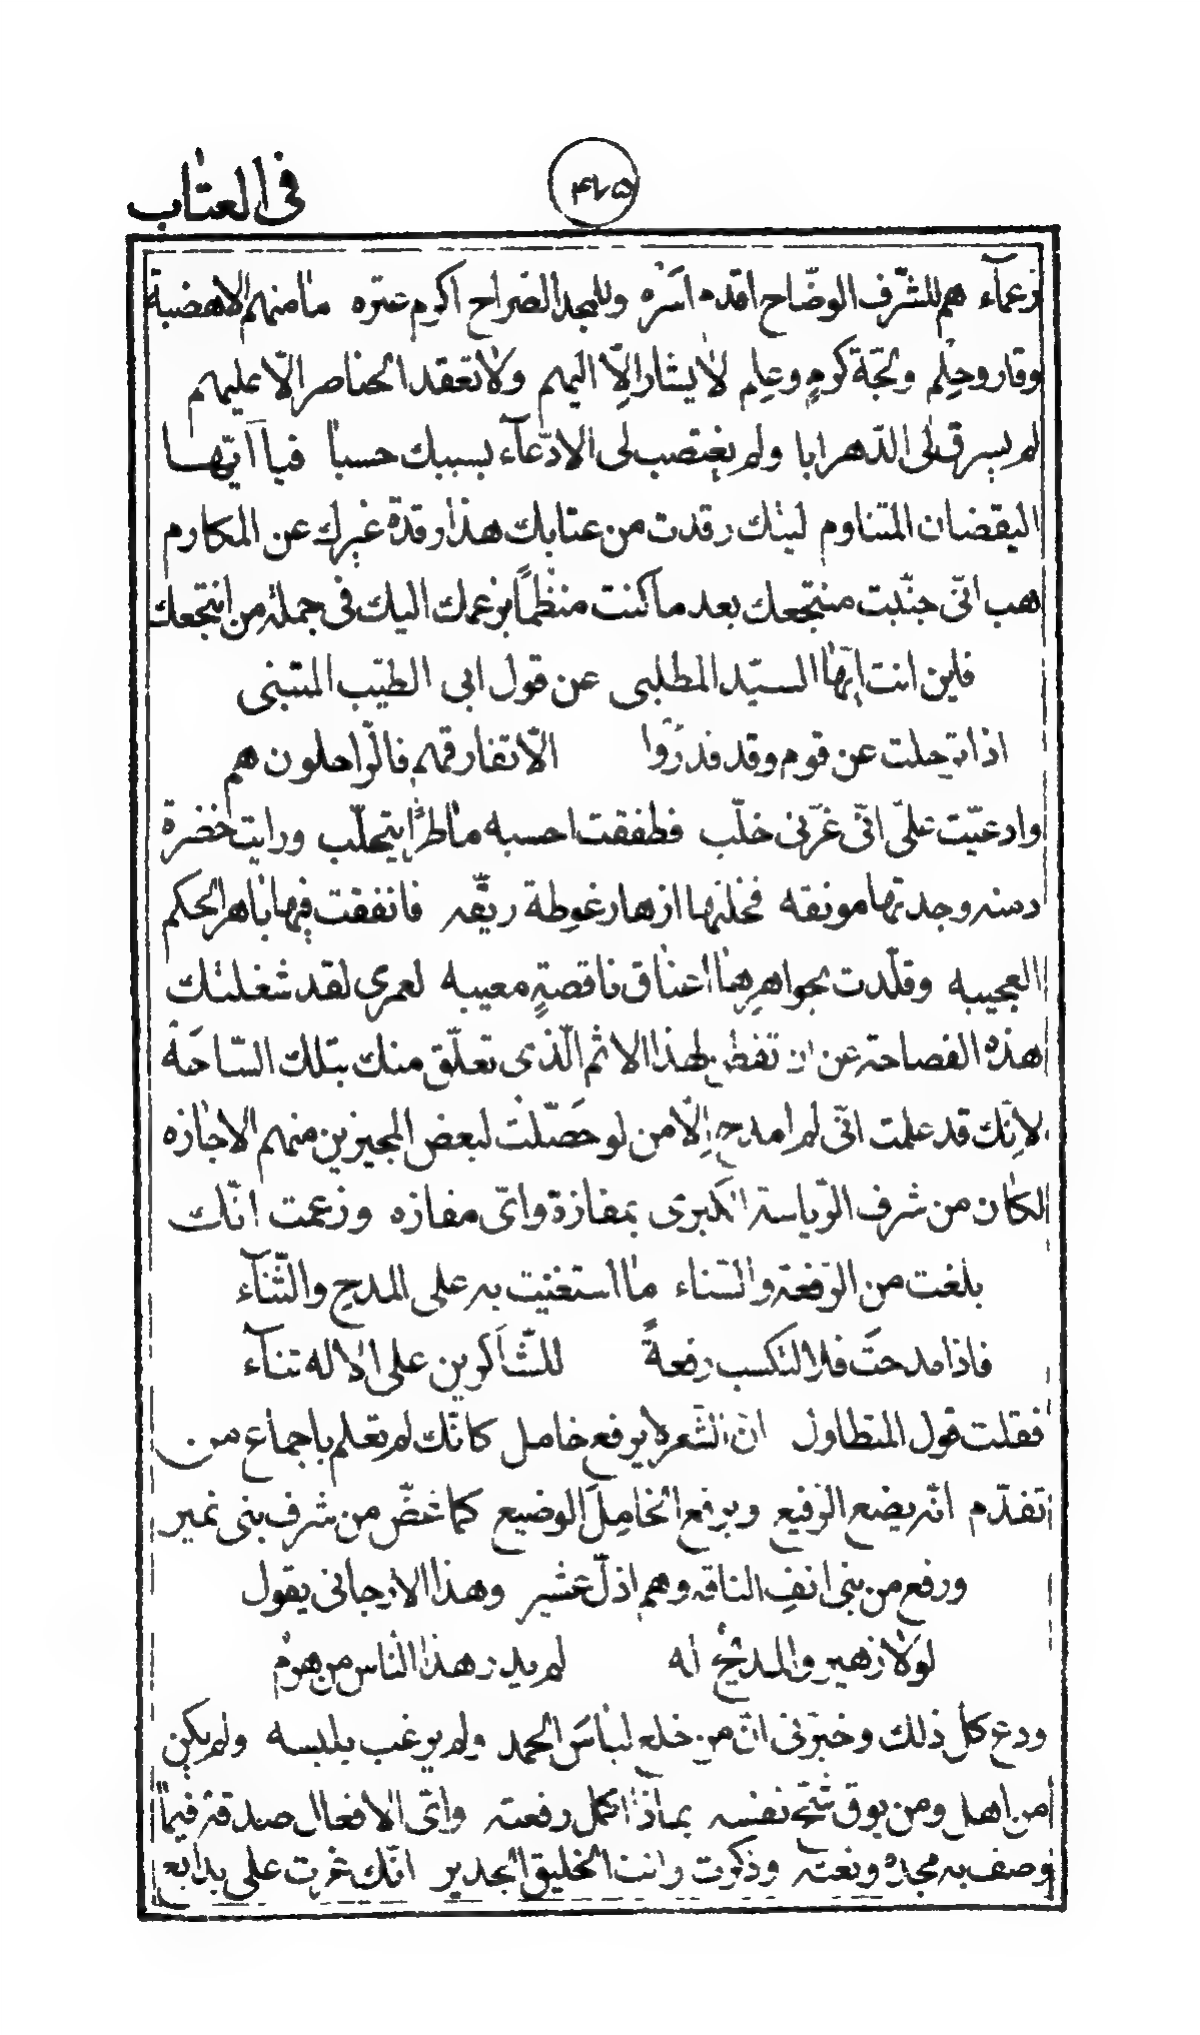 في العتاب
٤٦٥
زعمآء هم للشّرف الوضّاح اقدم اسره وللمجد الصراح اكرم عتره ما منهم الا هضبة
وقار وحلم ولجّة كرم وعلم لا يشار الّا اليهم ولا تعقد الخناصر الّا عليهم
لم يسرق لى الدّهر ابا ولم يغتصب لى الادّعآء بسببك حسبا فيا ايّها
اليقضان المتناوم ليتك رقدت من عتابك هذا رقدة غيرك عن المكارم
هب انّى جنّبت منتجعك بعد ما كنت منظمًا بزعمك اليك فى جملة من انتجعك
فاين انت ايّها السيّد المطلبى عن قول ابى الطيّب المتنبى
اذا ترحلت عن قوم وقد قدروا الّا تفارقهم فالرّاحلون هم
وادعيّت علىّ انّى غرّنى خلّب فطفقت احسبه ماطرًا يتحلّب ورايت خضرة
دمنه وجدتها مونقه فخلتها ازهار غوطة ريّقه فانفقت فيها باهر الحكم
العجيبه وقلّدت بجواهرها اعناق ناقصةٍ معيبه لعمرى لقد شغلتك
هذه الفصاحة عن ان تفطن لهذا الاثم الّذى تعلّق منك بتلك السّاحة
لانّك قد علمت انّى لم امدح الّا من لو حصّلت لبعض المجيزين منهم الاجازه
لكان من شرف الرّياسة الكبرى بمفازة واىّ مفازه وزعمت انّك
بلغت من الرّفعة والسّناء ما استغنيت به على المدح والثّنآء
فاذا مدحت فلا لتكسب رفعةً للشّاكرين على الاله ثنآء
فقلت قول المتطاول انّ الشّعر لا يرفع خامل كانّك لم تعلم باجماع من
تقدّم انّه يضع الرّفيع ويرفع الخامل الوضيع كما غضّ من شرف بنى نمير
ورفع من بنى انف الناقه وهم اذلّ عشير وهذا الارجانى يقول
لولا زهير والمديح له لم يدر هذا النّاس من هرم
ودع كل ذلك وخبرّنى انّ من خلع لباس الحمد ولم يرغب يلبسه ولم يكن
من اهل ومن يوق شحّ نفسه بماذا اكمل رفعته واىّ الافعال صدقة فيما
وصف به مجده ونعته وذكرت وانت الخليق الجدير انّك غرت على بدايع